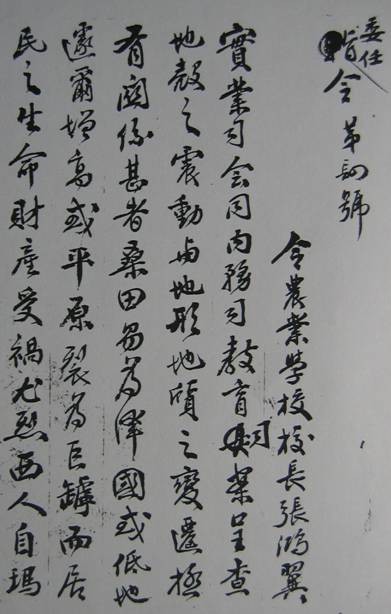 委任
令第號
令農業學校校長張鴻翼
實業司會同內務司教育司案呈查
地殼之震動與地形地之變遷極
有關係甚者桑田易為澤國或低地
遽爾增高或平原裂為巨罅而居
民之生命財產受禍尤烈西人自瑪